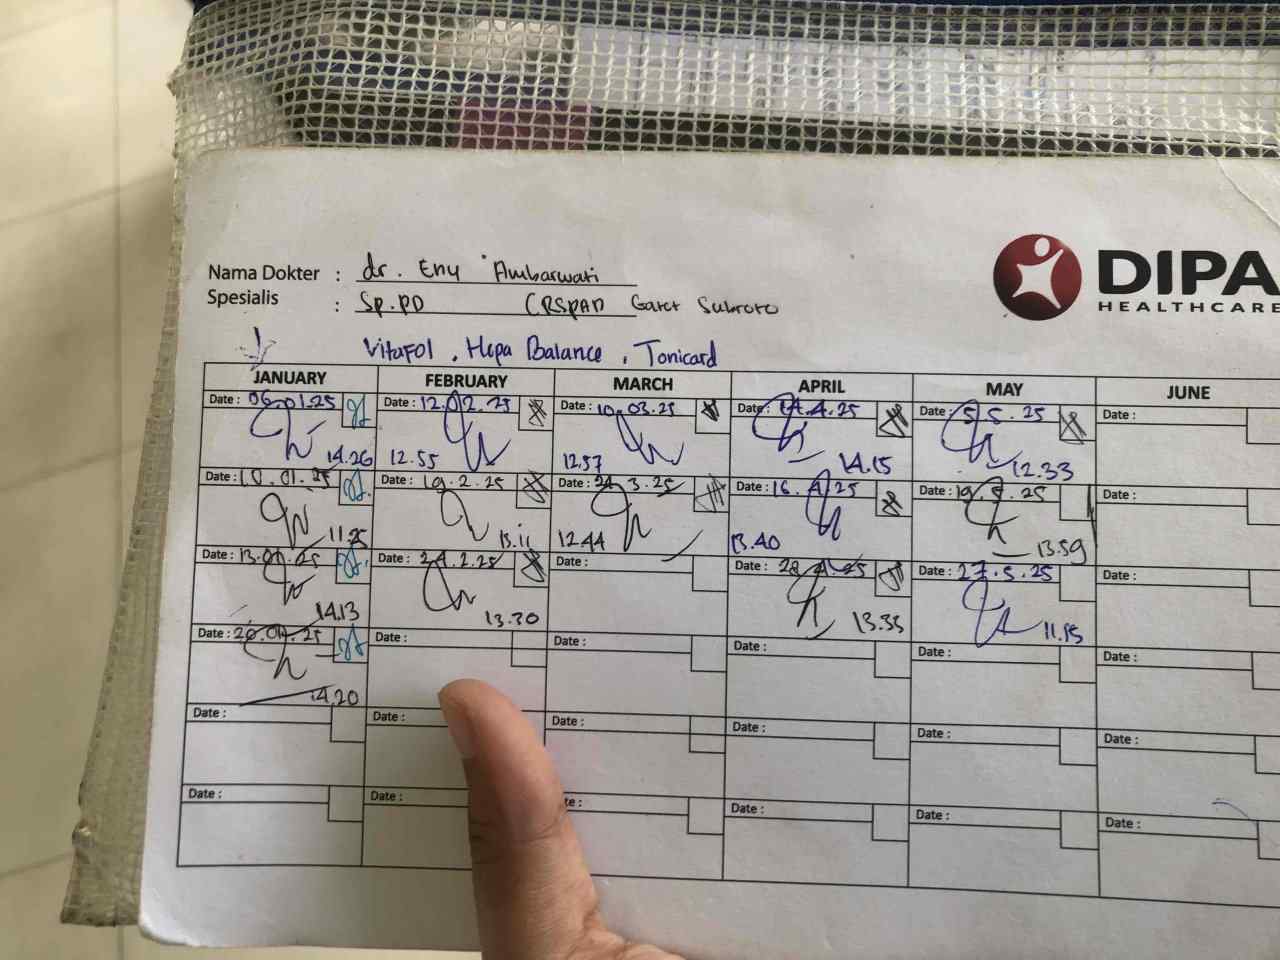 Nama Dokter : dr. Eny Ambarwati
Spesialis : Sp.PD (RSPAD Gatot Subroto
DIPA
HEALTHCARE
Vitafol, Hepa Balance, Tonicard
JANUARY FEBRUARY MARCH APRIL MAY JUNE
Date : 06.01.25 Date : 12.02.25 Date : 10.03.25 Date : 14.4.25 Date : 5.5.25 Date :
14.26 12.55 12.57 14.15 12.33
Date : 10.01.25 Date : 19.2.25 Date : 24.3.25 Date : 16.4.25 Date : 19.5.25 Date :
11.25 13.11 12.44 13.40 13.59
Date : 13.01.25 Date : 24.2.25 Date : Date : 28.4.25 Date : 27.5.25 Date :
14.13 13.30 13.35 11.15
Date : 20.01.25 Date : Date : Date : Date : Date :
14.20
Date : Date : Date : Date : Date : Date :
Date : Date : Date : Date : Date :